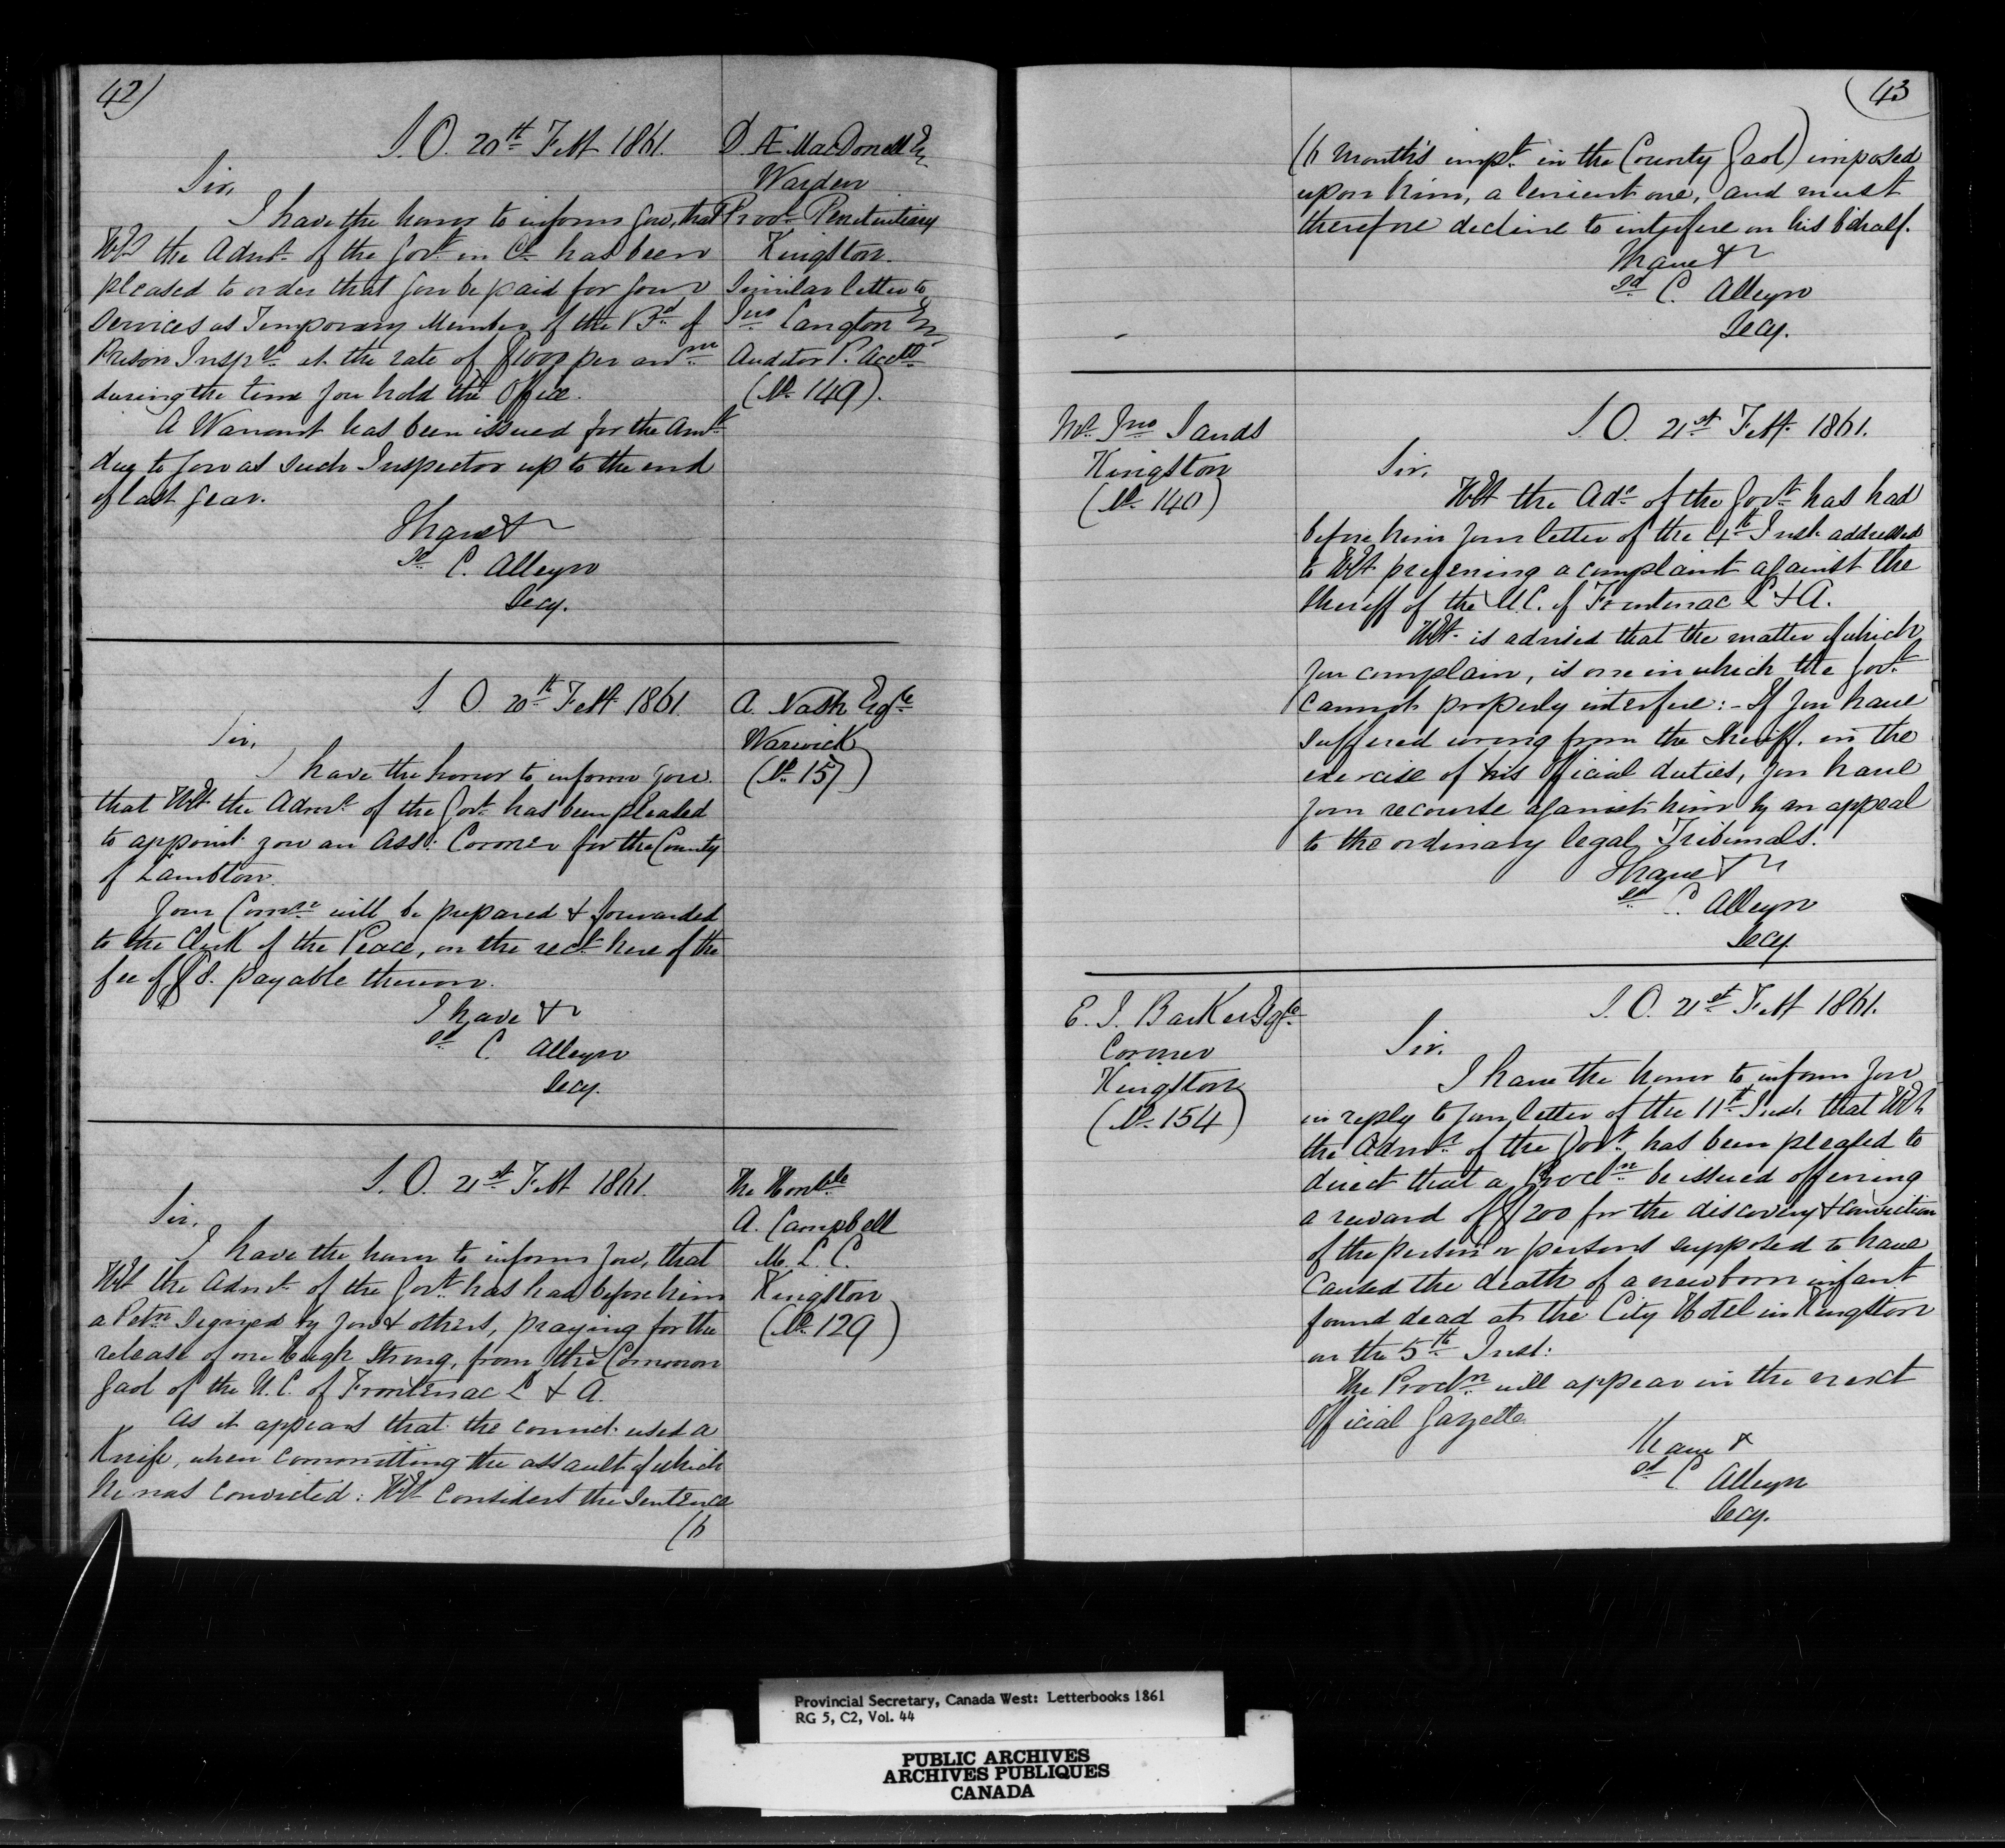 42)
S.O. 20th Feby 1861.
D. Æ MacDonell Esq
Warden
Provl Penitentiary
Kingston.
Similar letter to
Jno Langton Esq
Auditor P. Accts
(No 149).
Sir,
I have the honor to inform you, that
HE the Admr of the Govt in Cl has been
pleased to order that you be paid for your
Services as Temporary Member of the Bd of
Prison Insprs at the rate of $1000 per annm
during the time you hold the Office.
A Warrant has been issued for the Amt
due to you as such Inspector up to the end
of last year.
I have &c
sd C. Alleyn
Secy.
S.O. 20th Feby 1861.
A. Nash Esqre
Warwick
(No 157)
Sir,
I have the honor to inform you
that HE the Admr of the Govt has been pleased
to appoint you an Ass: Coroner for the County
of Lambton.
Your Comn will be prepared & forwarded
to the Clerk of the Peace, on the rect here of the
fee of $8. payable thereon.
I have &c
sd C. Alleyn
Secy.
S.O. 21st Feby 1861.
The Honble
A. Campbell
M.L.C.
Kingston
(No 129)
Sir,
I have the honor to inform you, that
HE the Admr of the Govt has had before him
a Petn signed by you & others, praying for the
release of one Hugh Strong, from the Common
Gaol of the U.C. of Frontenac L & A.
As it appears that the convict used a
Knife, when committing the assault of which
he was convicted: HE considers the Sentence
(6
43
(6 months impt in the County Gaol) imposed
upon him, a lenient one, and must
therefore decline to interfere on his behalf.
I have &c
sd C. Alleyn
Secy.
Mr Jno Sands
Kingston
(No 140)
S.O. 21st Feby 1861.
Sir,
HE the Adr of the Govt has had
before him your letter of the 4th Inst. addressed
to HE preferring a complaint against the
Sheriff of the U.C. of Frontenac L & A.
HE is advised that the matter of which
you complain, is one in which the Govt
cannot properly interfere:- If you have
suffered wrong from the Sheriff, in the
exercise of his Official duties, you have
your recourse against him by an appeal
to the ordinary legal Tribunals.
I have &c
sd C. Alleyn
Secy
E. J. Barker Esqre
Coroner
Kingston
(No 154)
S.O. 21st Feby 1861.
Sir,
I have the honor to inform you
in reply to your letter of the 11th Inst. that HE
the Admr of the Govt has been pleased to
direct that a Procln be issued offering
a reward of $200 for the discovery & conviction
of the person or persons supposed to have
caused the death of a new born infant
found dead at the City Hotel in Kingston
on the 5th Inst.
The Procln will appear in the next
Official Gazette
I have &
sd C Alleyn
Secy.
Provincial Secretary, Canada West: Letterbooks 1861
RG 5, C2, Vol. 44
PUBLIC ARCHIVES
ARCHIVES PUBLIQUES
CANADA